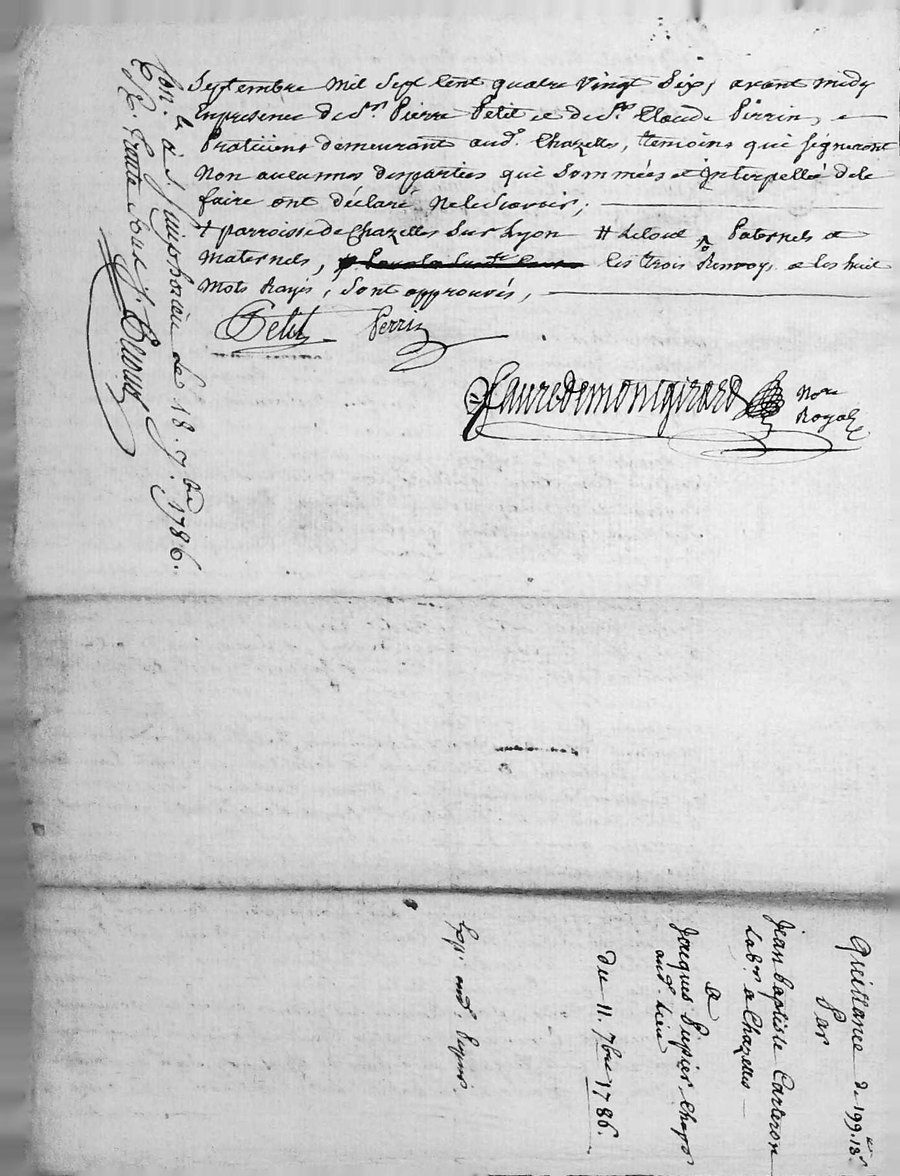 Septembre mil Sept Cent quatre vingt Six, avant midy
En presence de Sr. Pierre Petit et de Sr. Claude Perrin,
Praticiens demeurant aud. Chazelles, temoins qui signeront
Non aucunnes desparties qui Sommées et Interpellée de le
faire ont déclaré Ne le Scavoir,
# parroisse de Chazelles Sur Lyon # Paternels et
Maternels, les trois Renvoys et les huit
Mots Rayés, Sont approuvés,
Petit Perrin
Fauredemontgirard Nore
Royal
Con. le à St. Simphorien le 18. 7bre 1786.
Quittance de 199. 18s
Par
Jean baptiste Carteron
Labr. a Chazelles
A
Jacques Pupier
aud. Lieu
du 11. 7bre 1786.
Exp. aud. Pupier